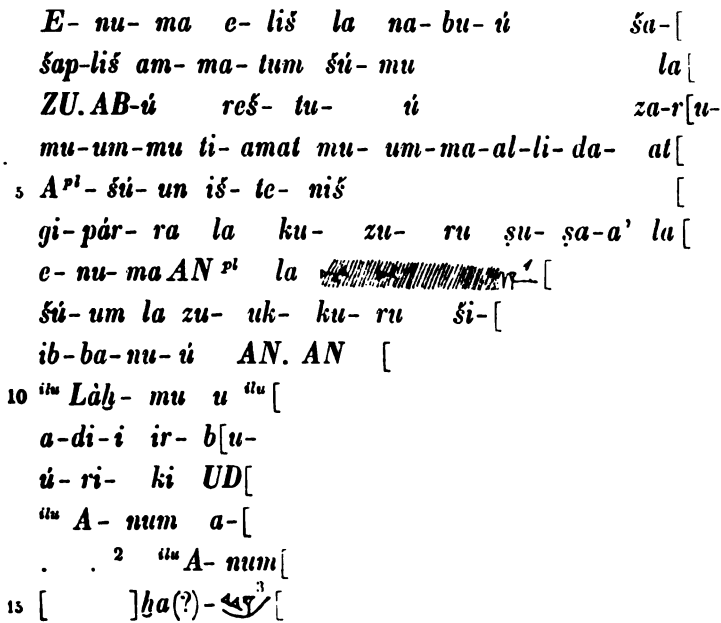 E- nu- ma e- liš la na- bu- ú ša-[
šap-liš am- ma- tum šú- mu la[
ZU. AB-ú reš- tu- ú za-r[u-
mu-um-mu ti- amat mu- um-ma-al-li- da- at[
5 Aᵖˡ- šú- un iš- te- niš [
gi-pár- ra la ku- zu- ru ṣu- ṣa-a' la [
e- nu- ma AN ᵖˡ la ¹ [
šú- um la zu- uk- ku- ru ši-[
ib-ba-nu-ú AN. AN [
10 ⁱˡᵘ Làḫ- mu u ⁱˡᵘ[
a-di-i ir- b[u-
ú- ri- ki UD[
ⁱˡᵘ A- num a-[
. . ² ⁱˡᵘ A- num[
15 [ ]ḫa(?)- ³ [